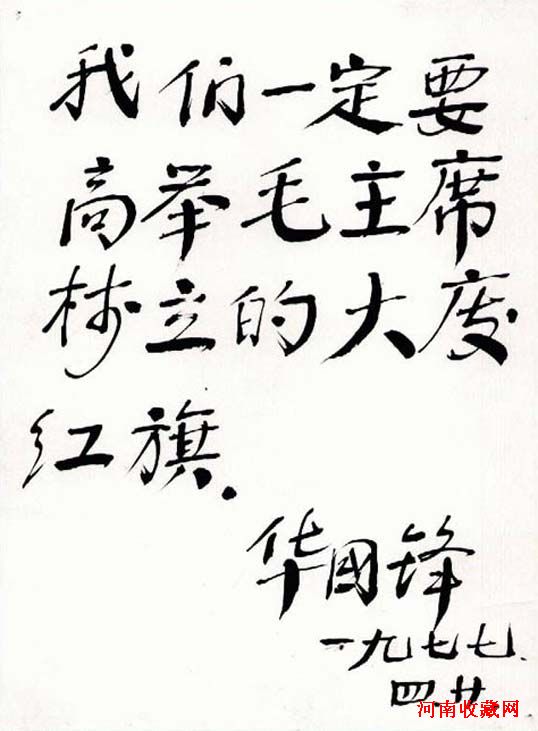 我们一定要
高举毛主席
树立的大庆
红旗.
华國锋
一九七七.
四.廿
河南收藏网